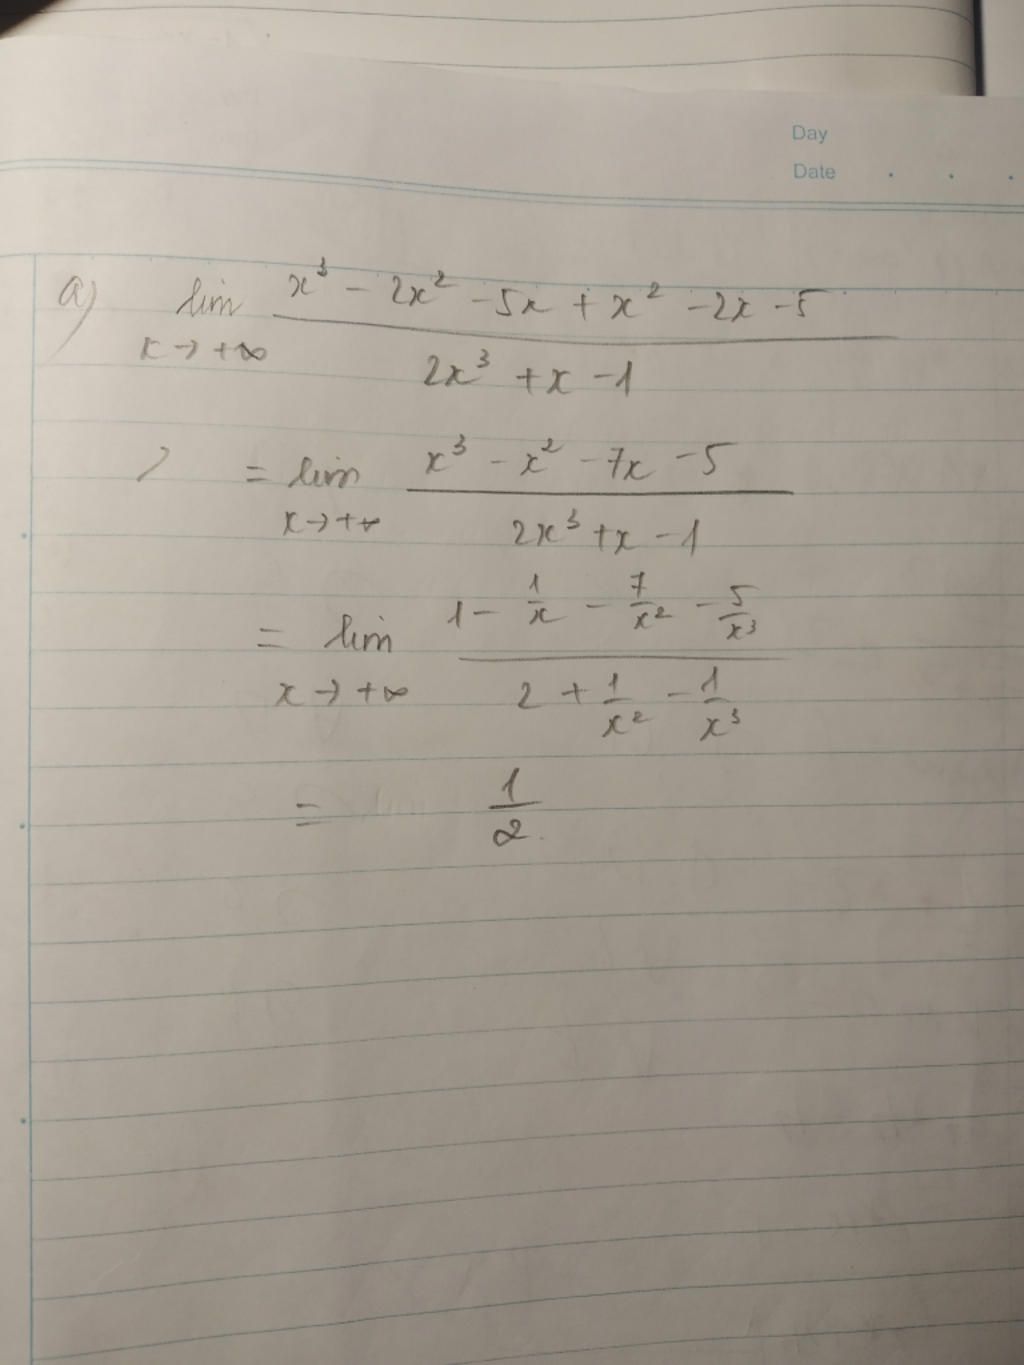 Day
Date . . .
a) lim x³ - 2x² - 5x + x² - 2x - 5
x → +∞ 2x³ + x - 1
= lim x³ - x² - 7x - 5
x → +∞ 2x³ + x - 1
= lim 1 - 1/x - 7/x² - 5/x³
x → +∞ 2 + 1/x² - 1/x³
= 1/2